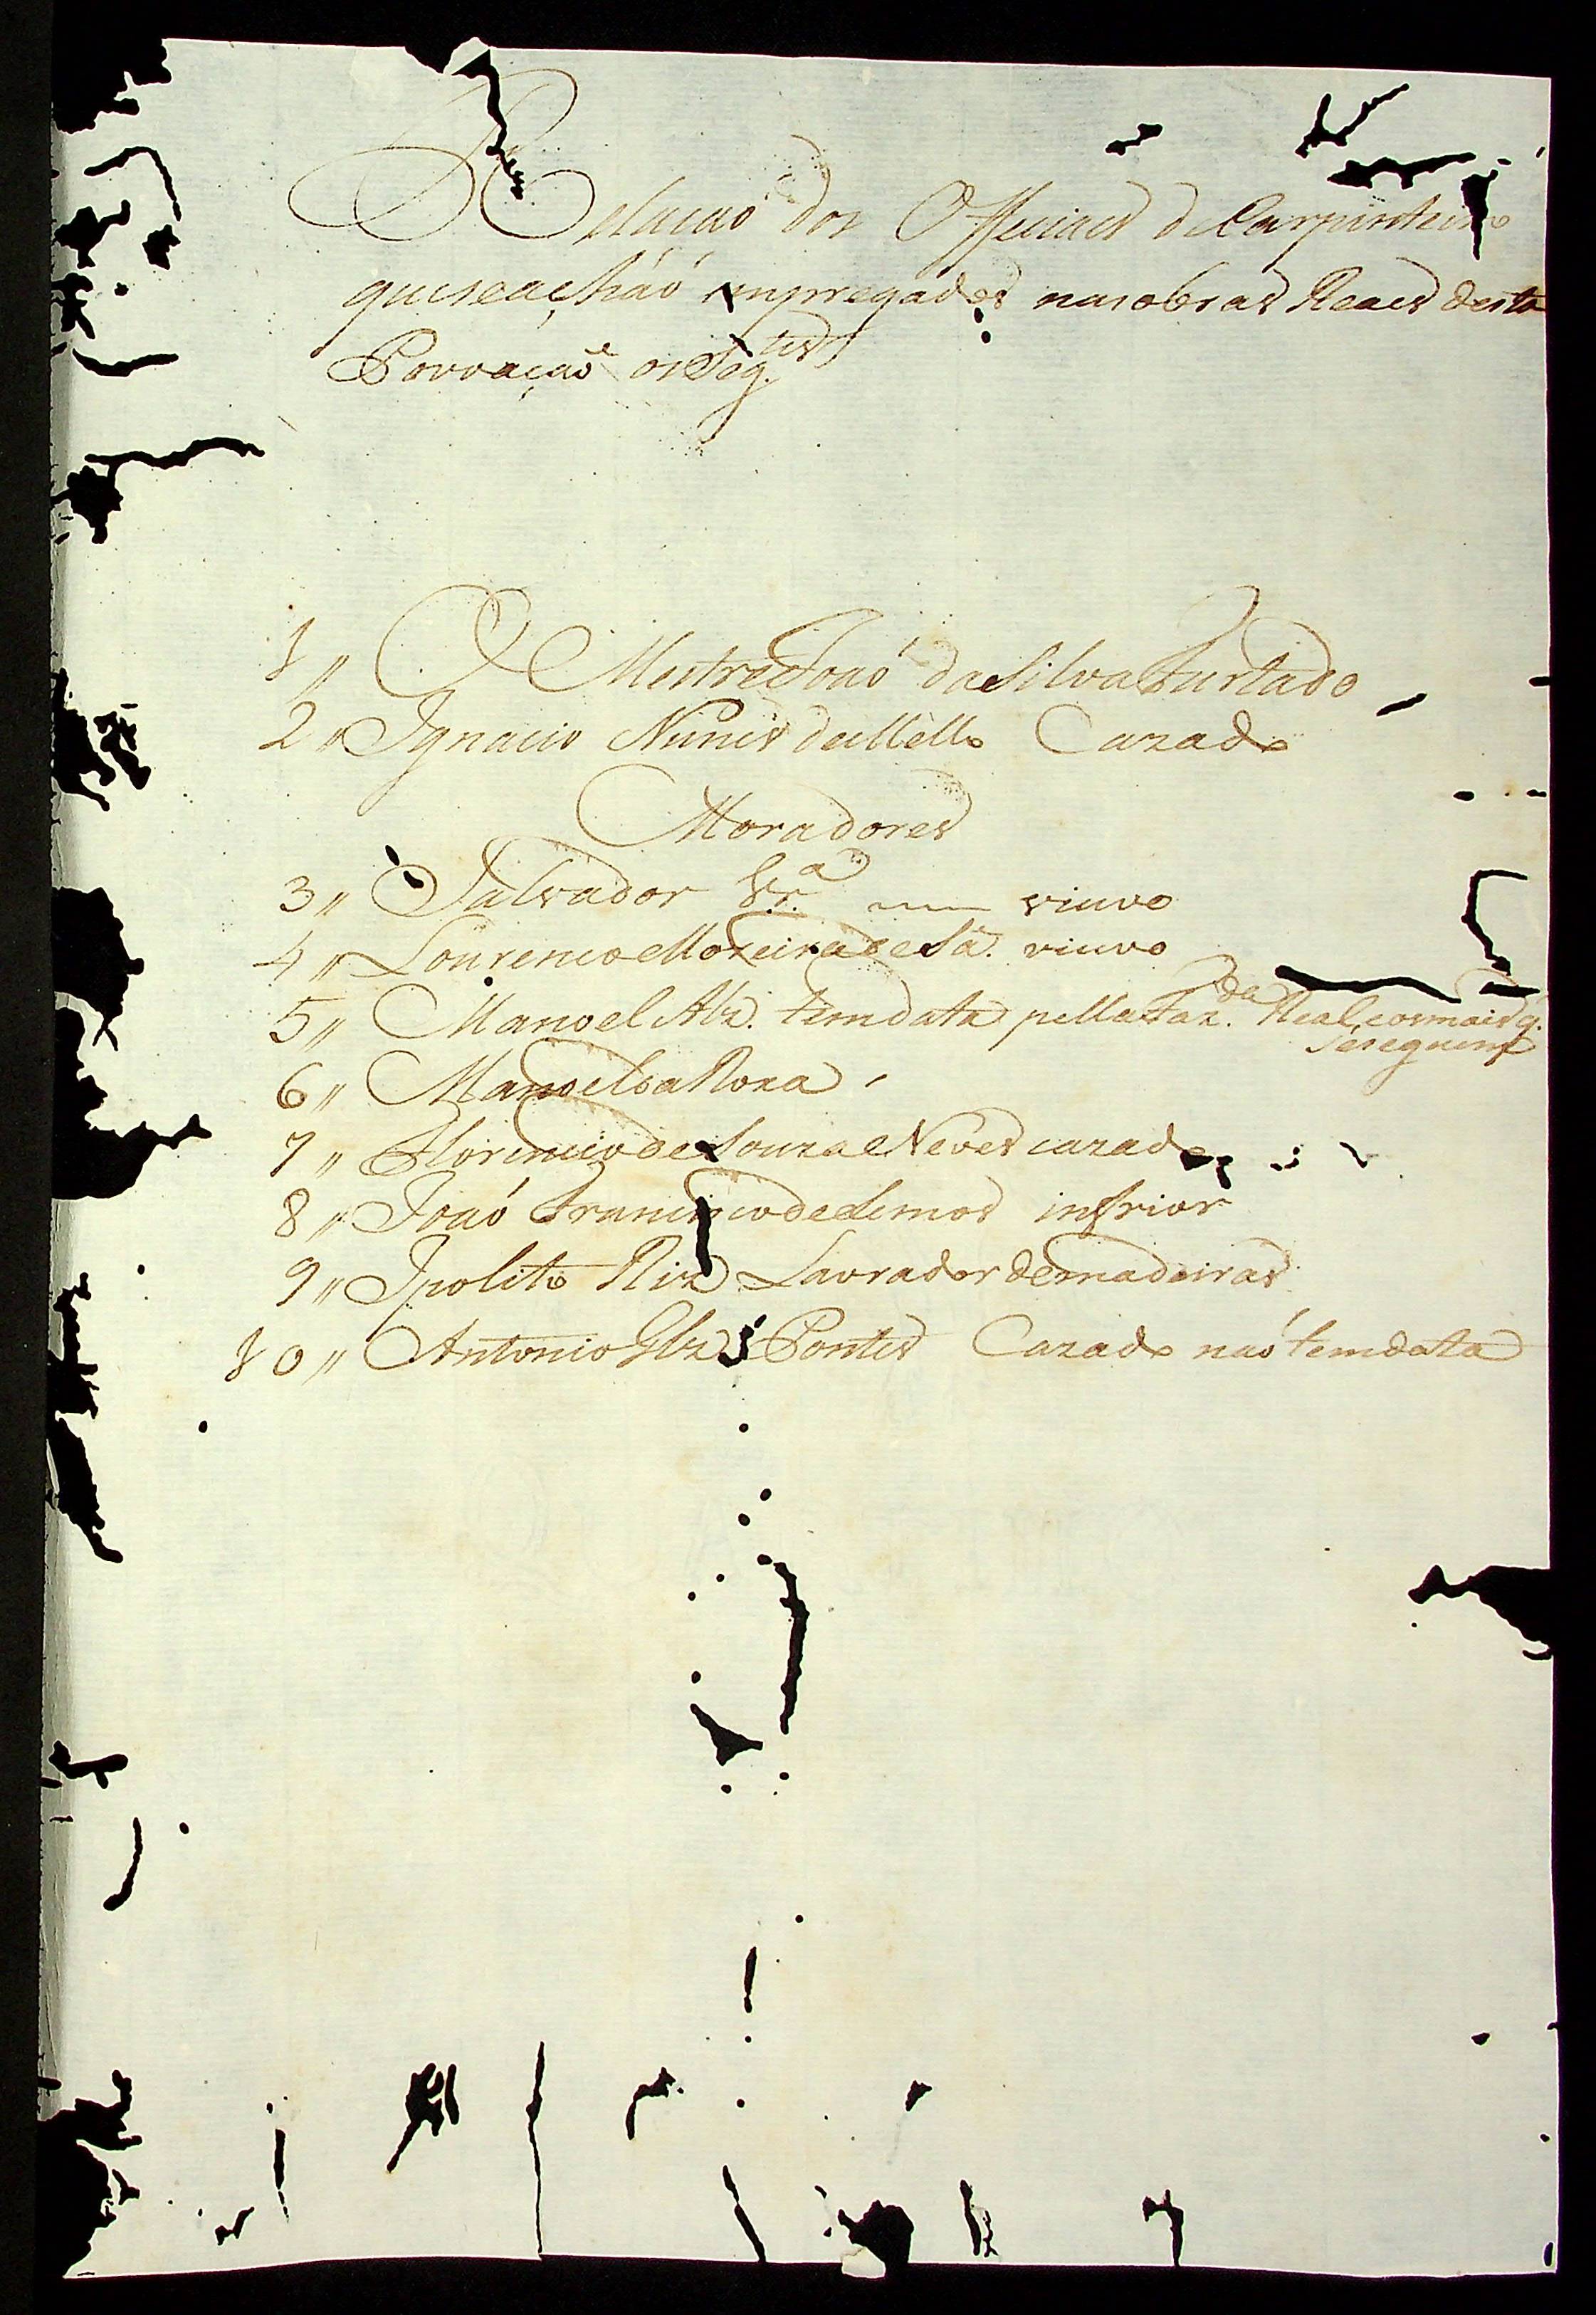 Relaçaõ dos Officiaes de Carpinteiro
que se acháo empregados nas obras Reaes desta
Povoaçaõ os Seg.tes
1,, O Mestre Joaó da Silva Furtado
2,, Ignacio Nunes de Mello Cazado
Moradores
3,, Salvador Vr.a viuvo
4,, Lourenco Moreira de Sá. viuvo
5,, Manoel Alz. tem data pella Faz.da Real, e os mais q.
se seguem
6,, Manoel da Roza
7,, Florencio de Souza e Neves cazado
8,, Joaó Francisco de Lemos infrior
9,, Ipolito Riz Lavrador de madeiras
10,, Antonio Glz Pontes Cazado naó tem data